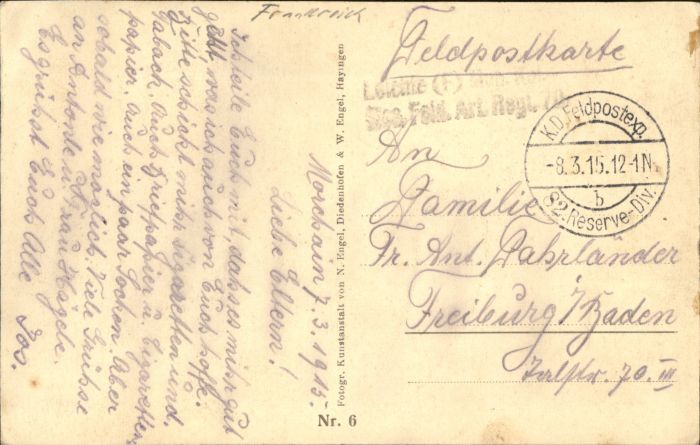 Frankreich
Morchain 7.3.1915.
Liebe Eltern!
Ich teile Euch mit dass es mir gut
geht, was ich auch von Euch hoffe.
Bitte schickt mir Zigaretten und
Tabach. Auch Briefpapier u. Cigaretten-
papier. Auch ein paar Socken. Aber
sobald wie möglich. Viele Grüsse
an Antonie u. Frau Hagele.
Es grüsst Euch Alle Jos.
Fotogr. Kunstanstalt von N. Engel, Diedenhofen & W. Engel, Hayingen
Nr. 6
Feldpostkarte
Leichte (F)
Feld. Art. Regt.
K.D. Feldpostexp.
-8.3.15.12-1N.
b
82. Reserve-Div.
An
Familie
Fr. Ant. Fahrländer
Freiburg i/Baden
Talstr. 70. III